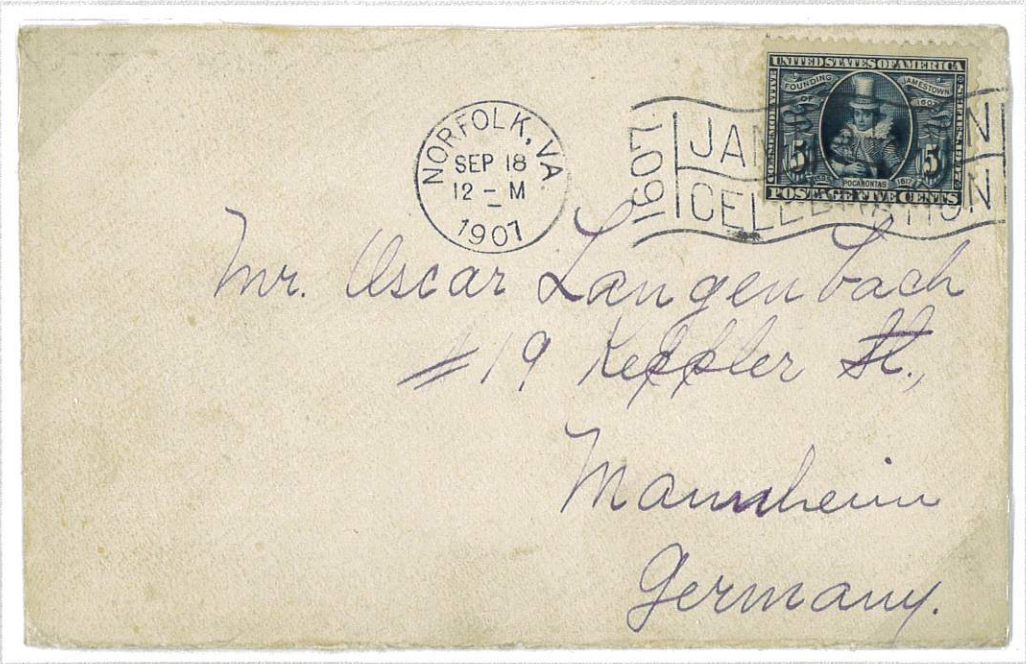 NORFOLK, VA.
SEP 18
12 - M
1907
1607
JAN
CELEBRATION
UNITED STATES OF AMERICA
COMMEMORATIVE
SERIES 1907
FOUNDING
OF
JAMESTOWN
1607
5
5
POCAHONTAS
POSTAGE FIVE CENTS
Mr. Oscar Langenbach
#19 Keppler St.,
Mannheim
Germany.